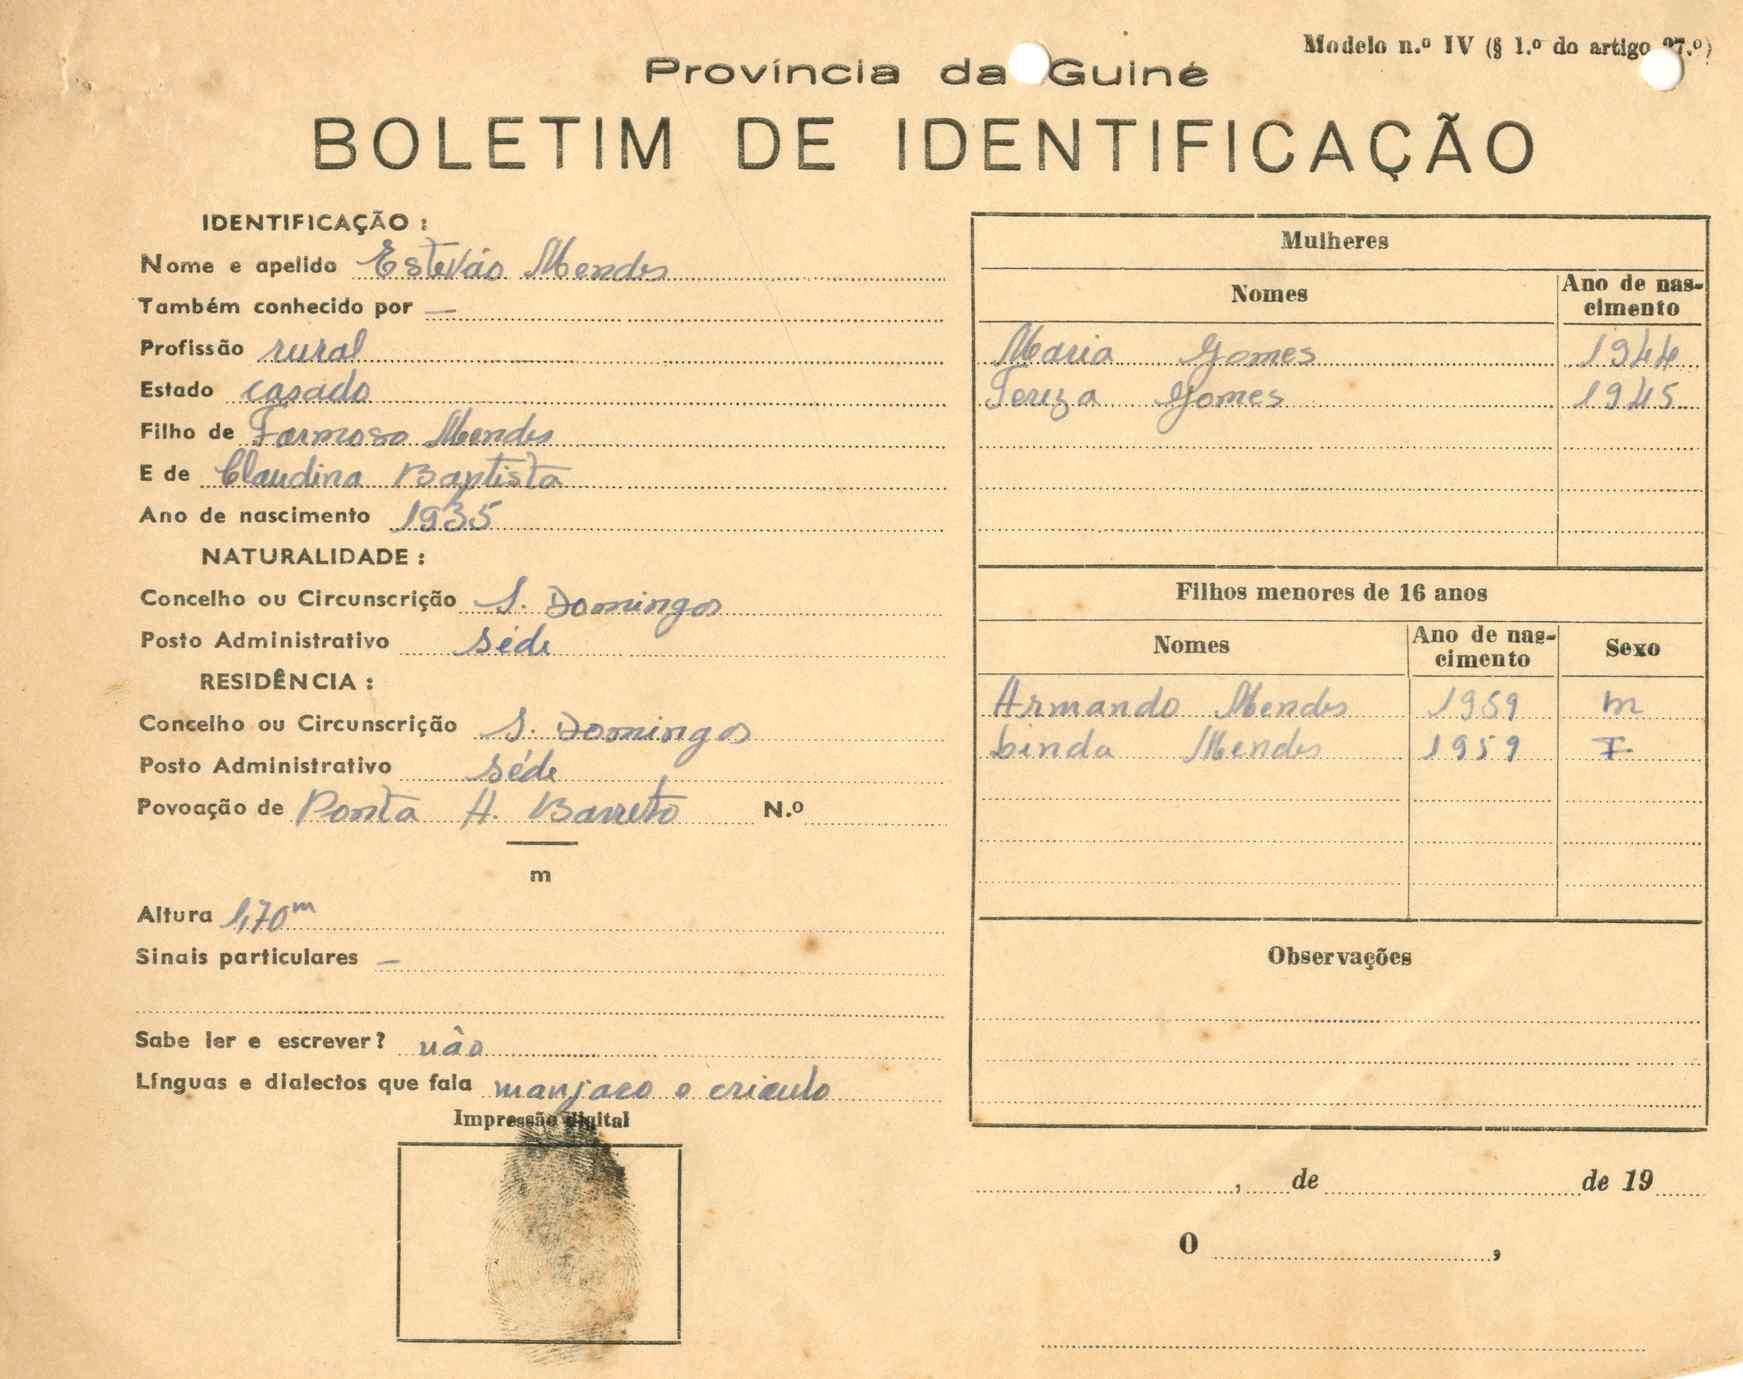 Modelo n.º IV (§ 1.º do artigo 97.º)
Província da Guiné
BOLETIM DE IDENTIFICAÇÃO
IDENTIFICAÇÃO :
Nome e apelido Estevão Mendes
Também conhecido por —
Profissão rural
Estado casado
Filho de Farmoso Mendes
E de Claudina Baptista
Ano de nascimento 1935
NATURALIDADE :
Concelho ou Circunscrição S. Domingos
Posto Administrativo séde
RESIDÊNCIA :
Concelho ou Circunscrição S. Domingos
Posto Administrativo séde
Povoação de Ponta A. Barreto N.º
m
Altura 1,70m
Sinais particulares —
Sabe ler e escrever? não
Línguas e dialectos que fala manjaco e crioulo
Impressão digital
Mulheres
Nomes
Ano de nas-
cimento
Maria Gomes 1944
Tereza Gomes 1945
Filhos menores de 16 anos
Nomes
Ano de nas-
cimento
Sexo
Armando Mendes 1959 m
Linda Mendes 1959 F
Observações
, de de 19
O ,